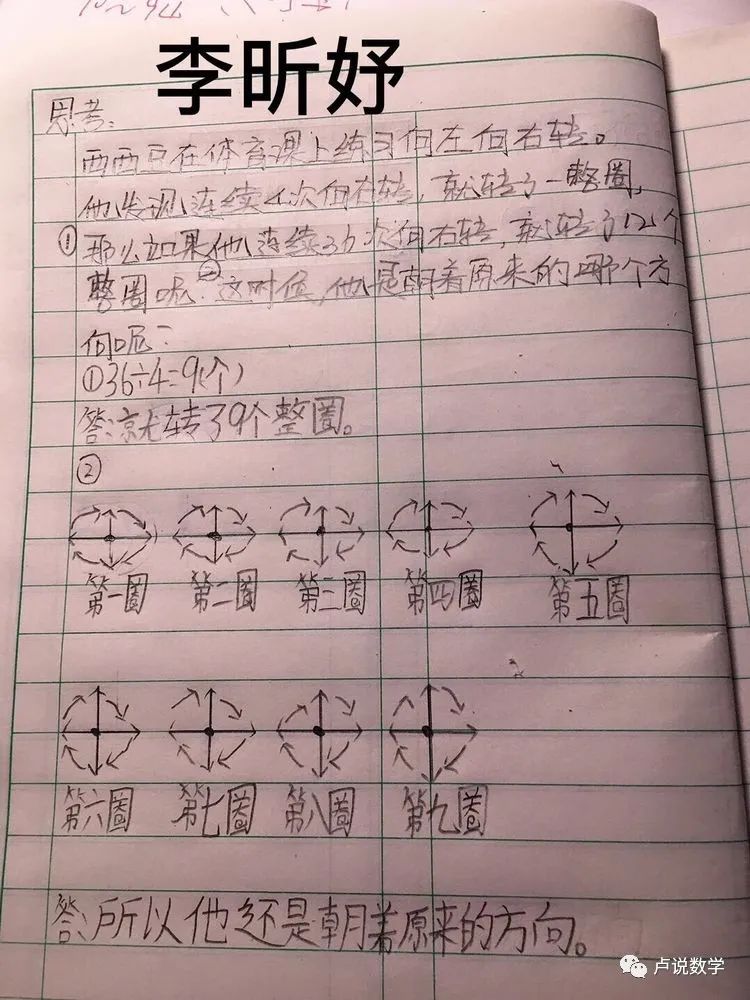 李昕妤
思考:
西西豆在体育课上练习向左向右转。
他发现连续4次向右转,就转了一整圈,
①那么如果他连续36次向右转,就转了12个
整圈呢?②这时候,他是朝着原来的哪个方
向呢?
①36÷4=9(个)
答:就转了9个整圈。
②
第一圈 第二圈 第三圈 第四圈 第五圈
第六圈 第七圈 第八圈 第九圈
答:所以他还是朝着原来的方向。
卢说数学